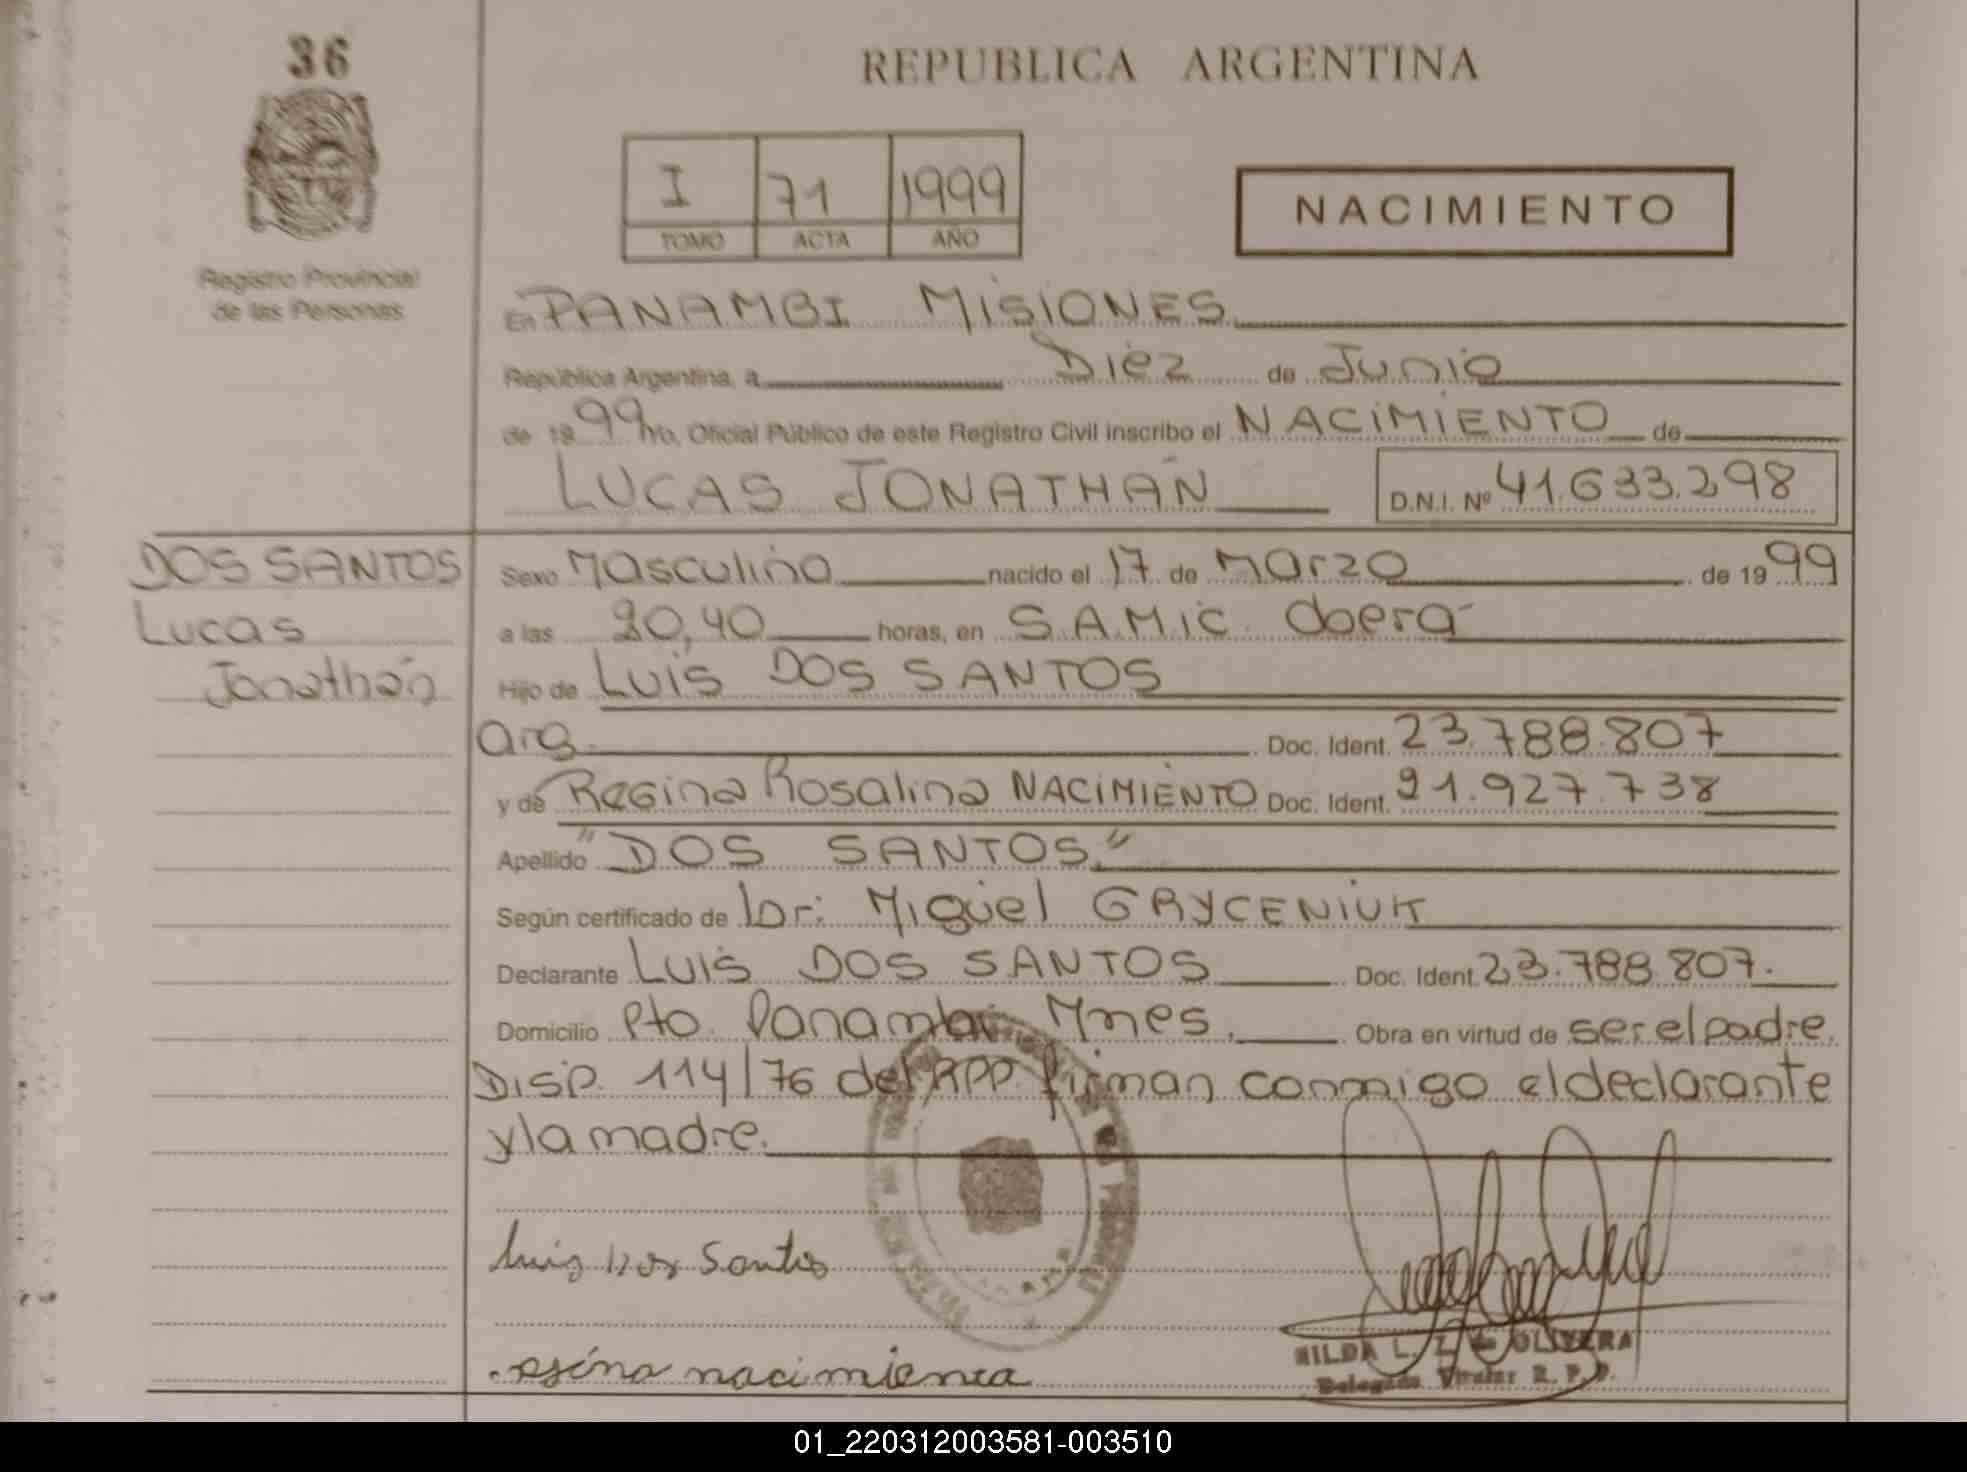 36
REPUBLICA ARGENTINA
I 71 1999
TOMO ACTA AÑO
NACIMIENTO
Registro Provincial
de las Personas
En PANAMBI MISIONES
República Argentina, a Diez de Junio
de 19 99 Yo, Oficial Público de este Registro Civil inscribo el NACIMIENTO de
LUCAS JONATHÁN D.N.I. Nº 41.633.298
DOS SANTOS
Lucas
Jonathán
Sexo Masculino nacido el 17 de Marzo de 19 99
a las 20,40 horas, en S.A.M.i.C. Oberá
Hijo de Luis DOS SANTOS
Arg. Doc. Ident. 23.788.807
y de Regina Rosalina NACIMIENTO Doc. Ident. 21.927.738
Apellido "DOS SANTOS."
Según certificado de Dr: Miguel GRYCENIUK
Declarante LUIS DOS SANTOS Doc. Ident. 23.788.807.
Domicilio Pto. Panambi Mnes. Obra en virtud de ser el padre.
DISP. 114/76 del RPP. firman conmigo el declarante
y la madre.
Luis Dos Santos
HILDA L. Z. de OLIVERA
Delegada Titular R. P. P.
nacimienta
01_220312003581-003510